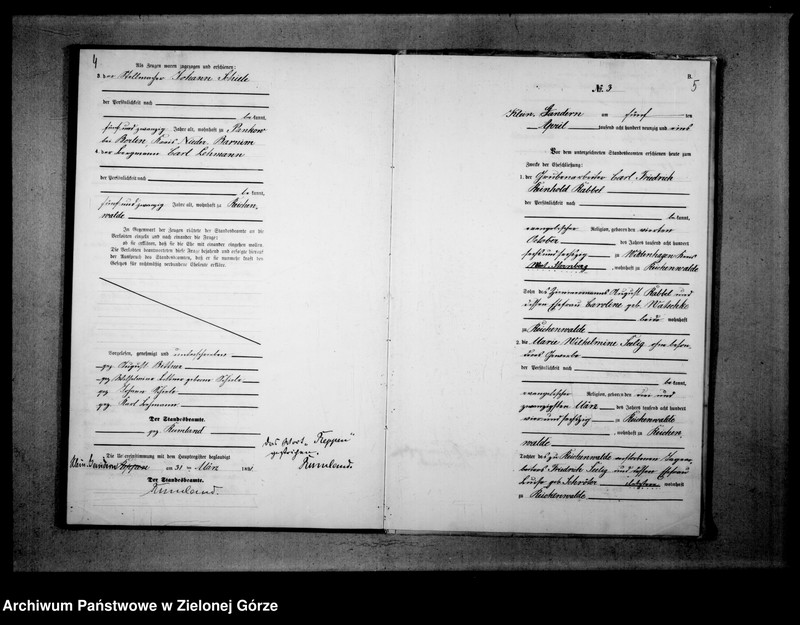 4
Als Zeugen waren zugezogen und erschienen:
3. der Stellmacher Johann Schiele
der Persönlichkeit nach
be kannt,
fünf und zwanzig Jahre alt, wohnhaft zu Pankow
Kreis Nieder Barnim
4. der Bergmann Carl Lehmann
der Persönlichkeit nach
be kannt,
fünf und zwanzig Jahre alt, wohnhaft zu Reichen
walde
In Gegenwart der Zeugen richtete der Standesbeamte an die
Verlobten einzeln und nach einander die Frage:
ob sie erklären, daß sie die Ehe mit einander eingehen wollen.
Die Verlobten beantworteten diese Frage bejahend und erfolgte hierauf
der Ausspruch des Standesbeamten, daß er sie nunmehr kraft des
Gesetzes für rechtmäßig verbundene Eheleute erkläre.
Vorgelesen, genehmigt und unterschrieben
gez. August
gez. Wilhelmine geborene Schiele
gez. Johann Schiele
gez. Karl Lehmann
Der Standesbeamte.
gez. Rumland
Die Übereinstimmung mit dem Hauptregister beglaubigt
Klein Gandern am 31 ten März 18 91
Der Standesbeamte.
Rumland.
Das Wort "Treppeln"
gestrichen.
Rumland.
B.
5
№ 3
Klein Gandern am fünf ten
April tausend acht hundert neunzig und eins
Vor dem unterzeichneten Standesbeamten erschienen heute zum
Zwecke der Eheschließung:
1. der Grubenarbeiter Carl Friedrich
Reinhold Rabbel
der Persönlichkeit nach
be kannt,
evangelischer Religion, geboren den vierten
October des Jahres tausend acht hundert
sechs und sechszig zu Wittenhagen Kreis
West Sternberg, wohnhaft zu Reichenwalde
Sohn des Zimmermanns August Rabbel und
dessen Ehefrau Caroline geb. Watschke
beide wohnhaft
zu Reichenwalde
2. die Marie Wilhelmine Seelig ohne beson
deres Gewerbe
der Persönlichkeit nach
be kannt,
evangelischer Religion, geboren den vier und
zwanzigsten März des Jahres tausend acht hundert
vier und sechszig zu Reichenwalde
, wohnhaft zu Reichen
walde
Tochter des zu Reichenwalde verstorbenen
Friedrich Seelig und dessen Ehefrau
Louise geb. Schröter wohnhaft
zu Reichenwalde
Archiwum Państwowe w Zielonej Górze